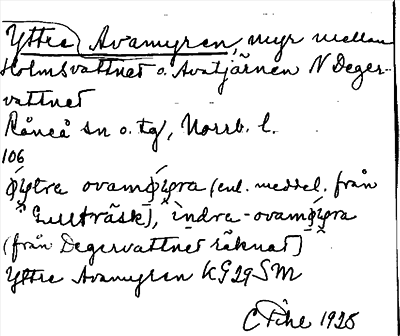 Yttre Avamyren, myr mellan
Holmsvattnet o. Avatjärnen N Deger-
vattnet
Råneå sn o. tg, Norrb. l.
106
ovam (enl. meddel. från
Gullträsk), indra-ovam
(från Degervattnet räknat)
Yttre Avamyren KG29SM
1925